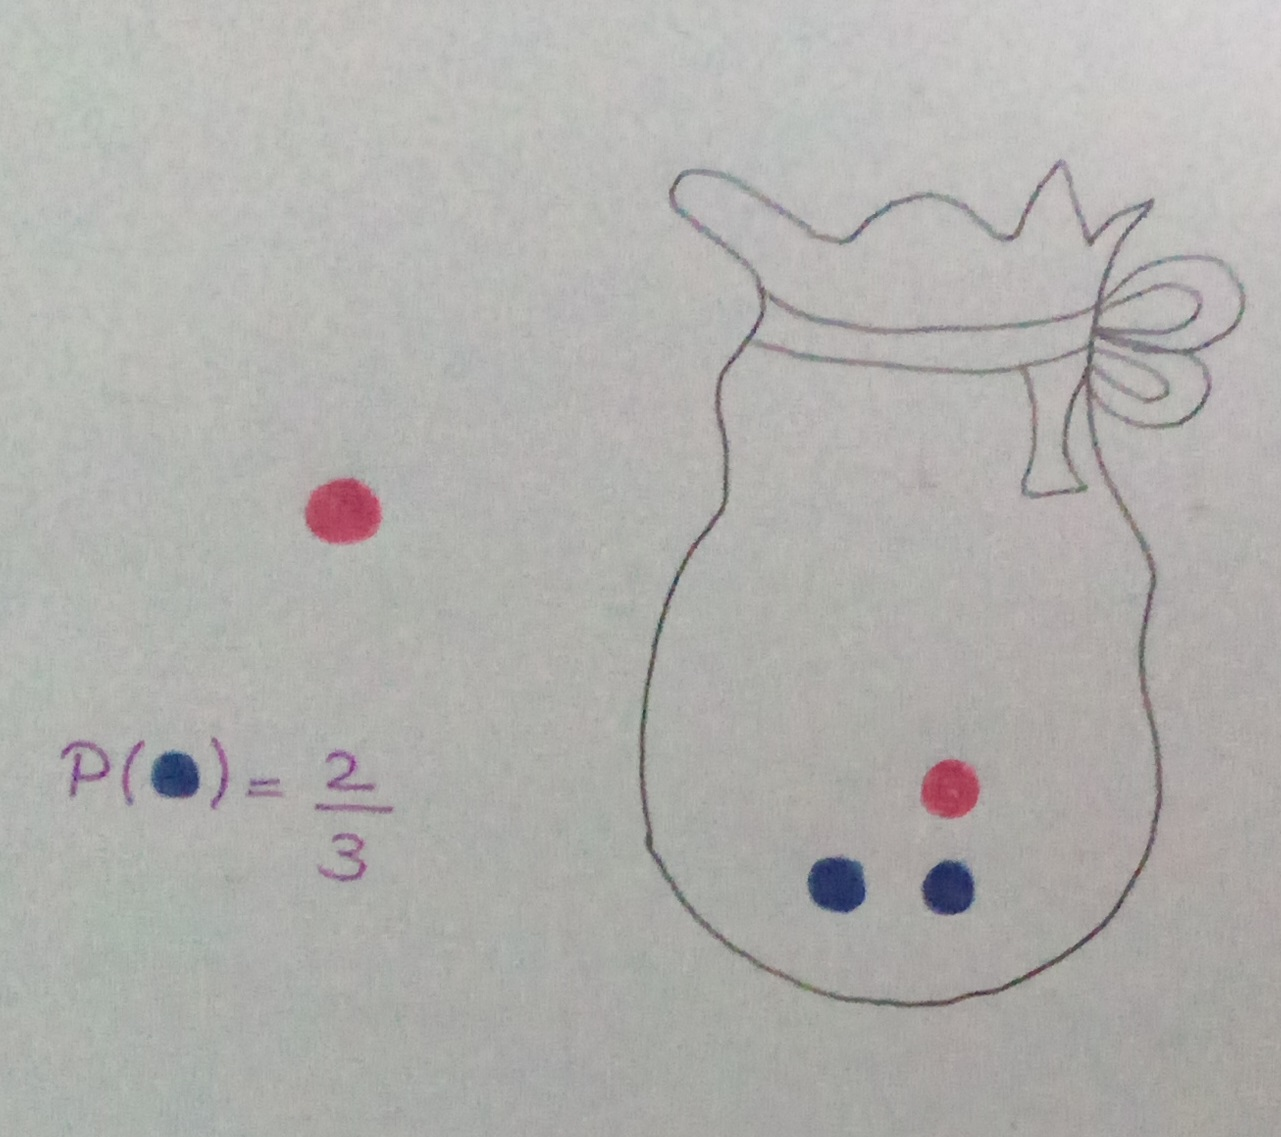 P(●) = 2/3